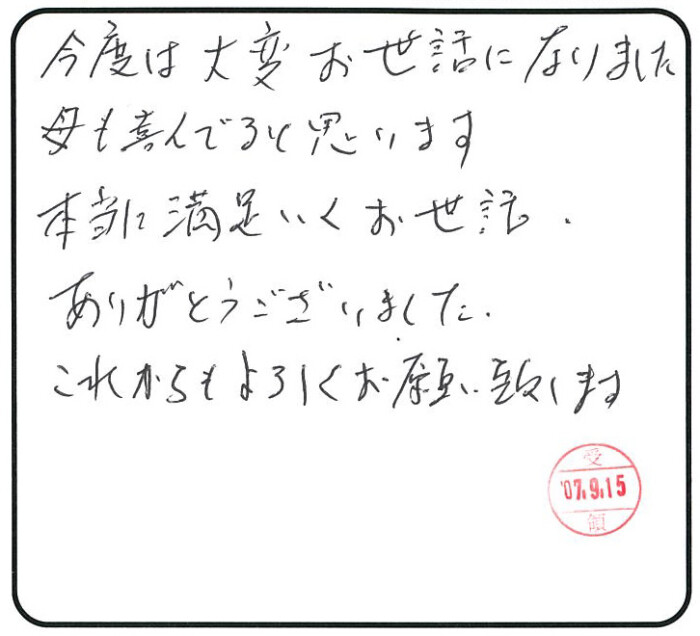 今度は大変お世話になりました
母も喜んでると思います
本当に満足いくお世話.
ありがとうございました.
これからもよろしくお願い致します
受
'07.9.15
領